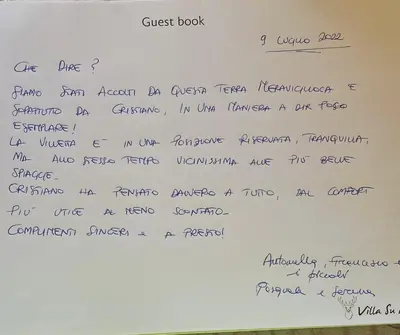 Guest book
9 LUGLIO 2022
CHE DIRE?
SIAMO STATI ACCOLTI DA QUESTA TERRA MERAVIGLIOSA E
SOPRATTUTTO DA CRISTIANO, IN UNA MANIERA A DIR POCO
ESEMPLARE!
LA VILLETTA E' IN UNA POSIZIONE RISERVATA, TRANQUILLA,
MA ALLO STESSO TEMPO VICINISSIMA ALLE PIÙ BELLE
SPIAGGE_
CRISTIANO HA PENSATO DAVVERO A TUTTO, DAL COMFORT
PIÙ UTILE AL MENO SCONTATO_
COMPLIMENTI SINCERI E A PRESTO!
Antonella, Francesco e
i piccoli
Pasquale e Serena
Villa Su